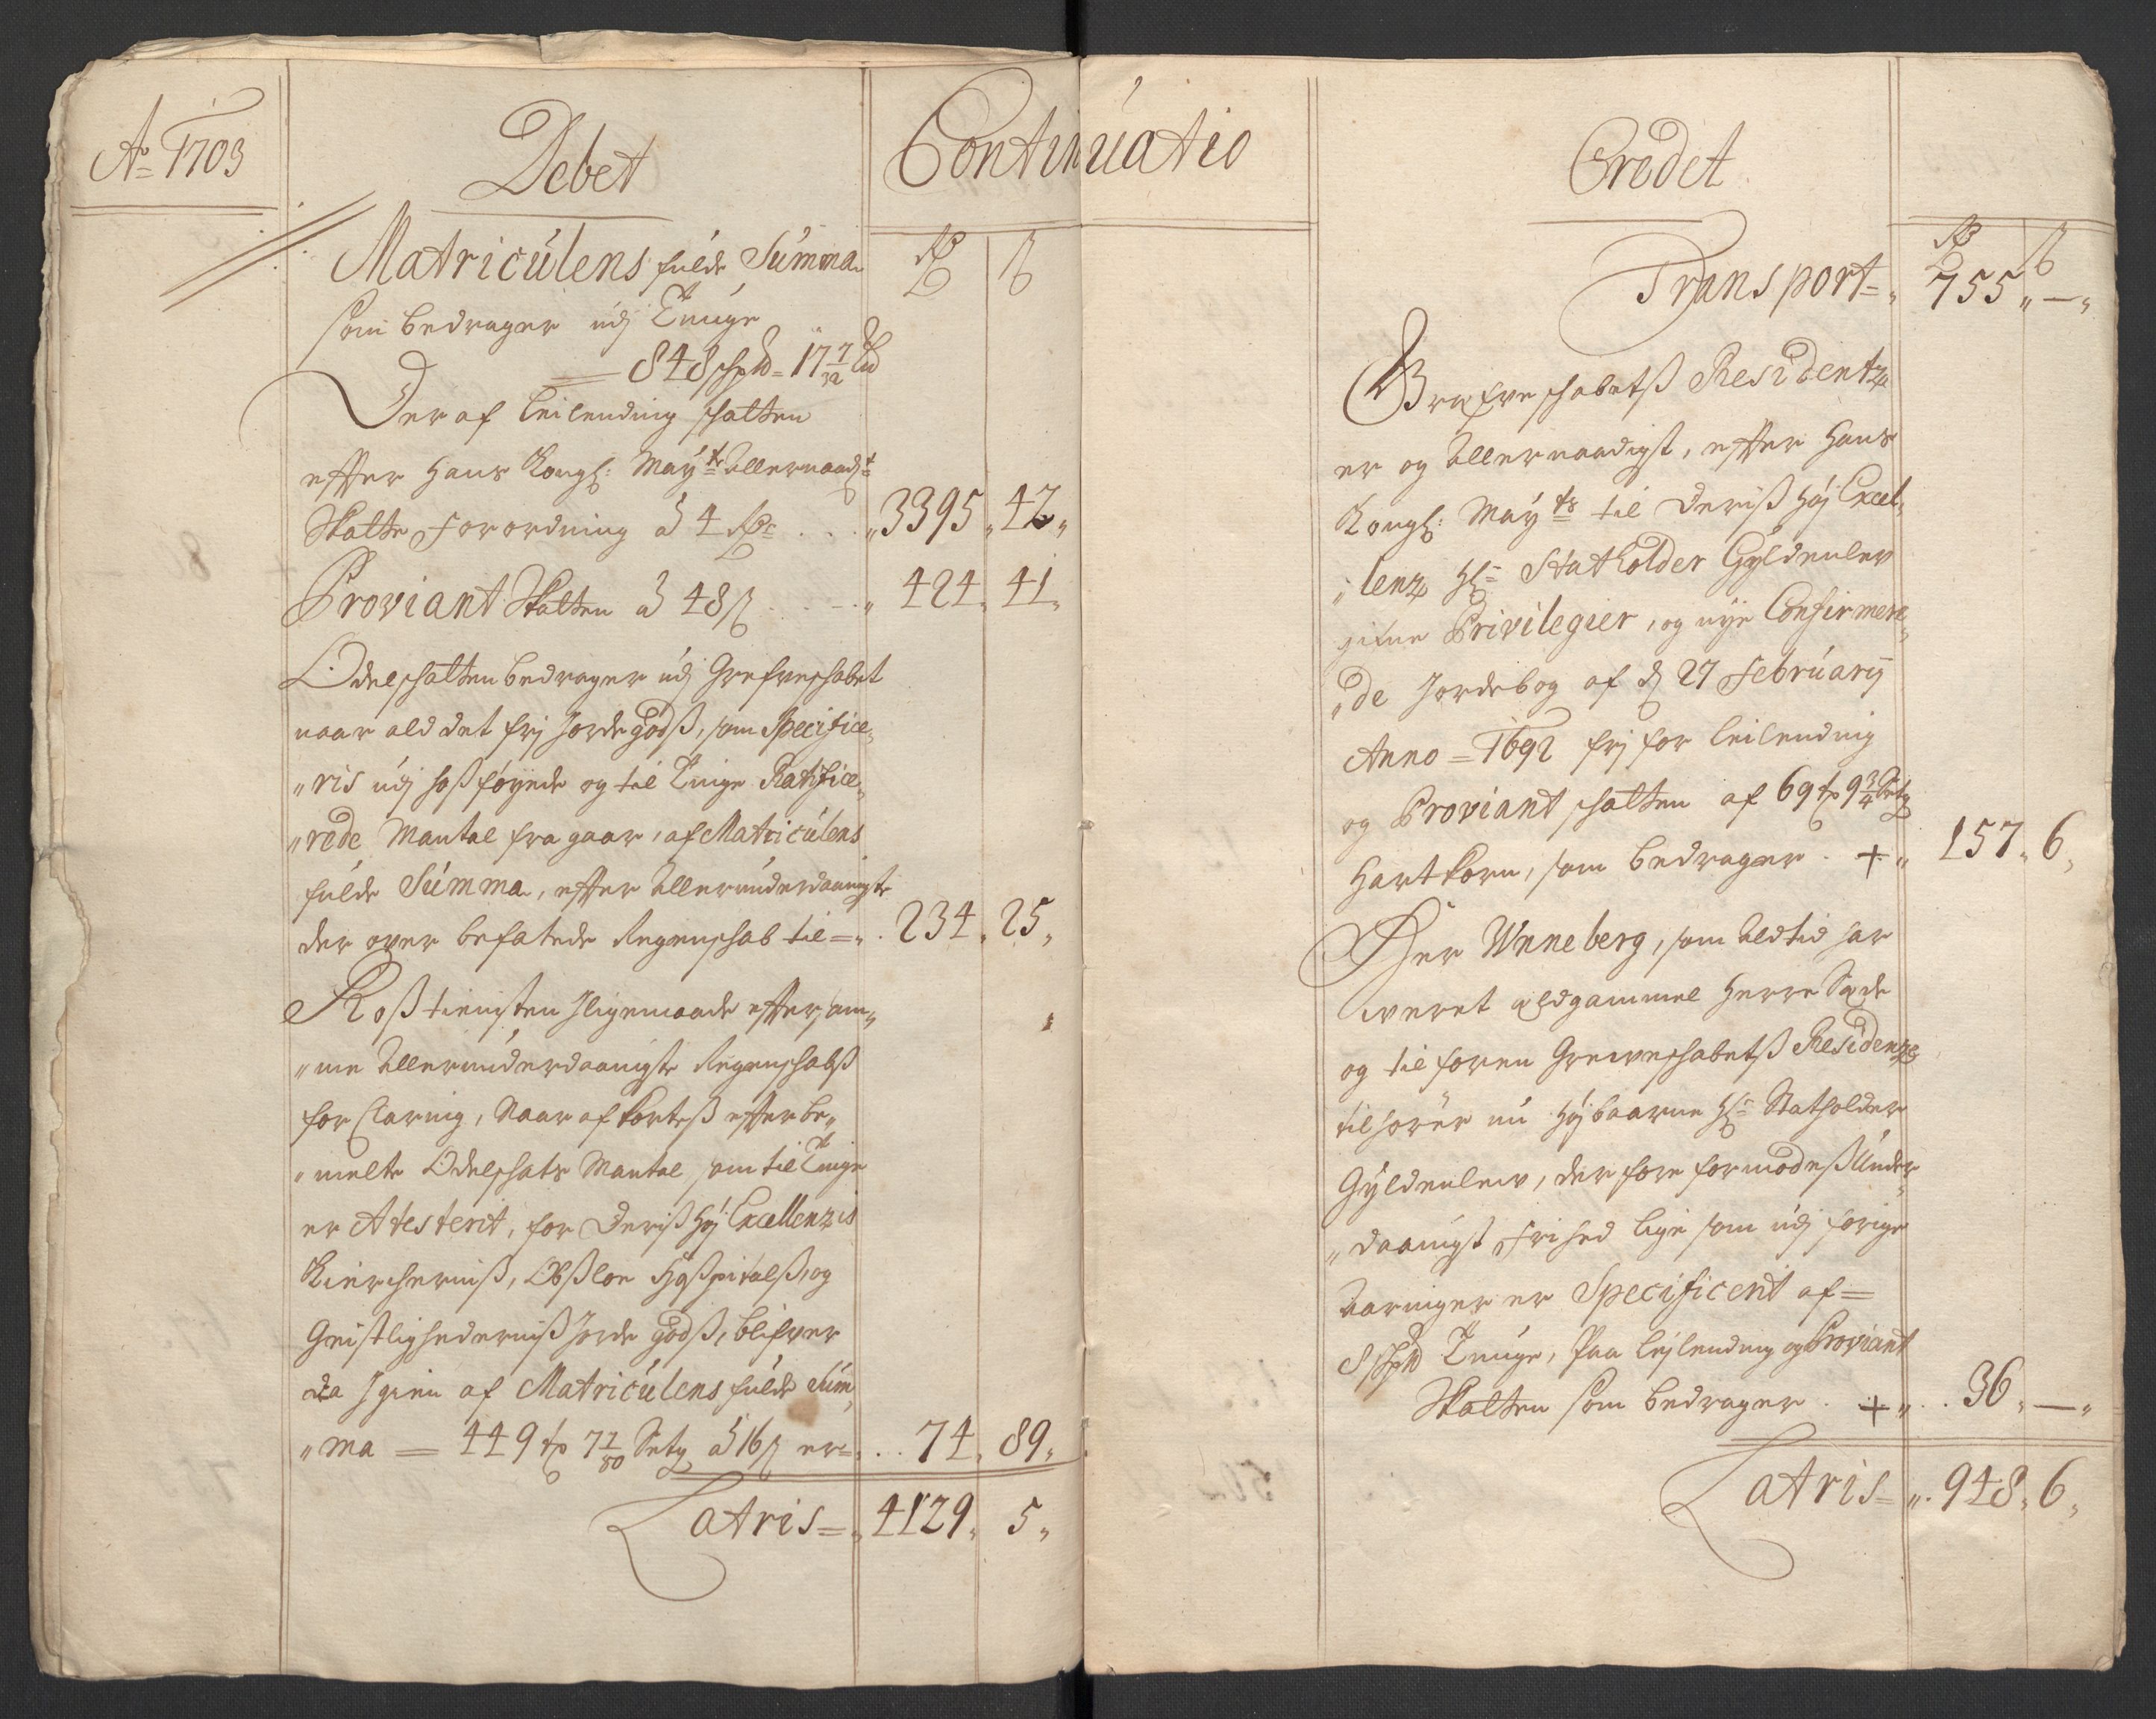 Ao 1703
Debet
Continuatio
Matriculens fulde Summa
som bedrager udj Tunge
848 skpd 17 7/32 Ld
Der af leilending skatten
effter Hans Kongl: Mayts Allernaadst
Skatte Forordning à 4 Rdr . . . 3395 „ 42 „
Proviant Skatten à 48 s . . . 424 „ 41 „
Odelskatten bedrager udj Grefveskabet
naar ald det frj Jorde Godß, som Specifice„
„ris udj hoßføyede og til Tinge Ratifice„
„rede Mantal fra gaar, af Matriculens
fulde Summa, effter Allerunderdanigste
der over befatede Regenskab til = . 234 „ 25 „
Roß tienisten Jligemaade effter sam„
„me Allerunderdaanigste Regenskabß
for Claring, Naar afkorteß effter be„
„melte Odelskats Mantal som til Tinge
er Atesterit, for Deriß Høj Excellenzis
Kiercherniß, Obßloe Hoßpitalß, og
Geistlighederniß Jorde Godß, blifver
da Jgien af Matriculens fulde Sum„
„ma = 449 7 1/80 Setg à 16 s er = . . 74 „ 89 „
Latris = 4129 „ 5 „
Credit
Transport = 755 „ — „
Grefve skabetß Residentz
er og Allernaadigst, effter Hans
Kongl: Mayts til Deriß Høj Excel„
„lenz Hr Statholder Gyldenlev
gifne Privilegier, og nye Confirmere„
„de Jordebog af d 27 Februarij
Anno = 1692 frj for leilending
og Proviant skatten af 69 9 3/4 Setg
Hartkorn, som bedrager . + „ 157 „ 6 „
Her Wnneberg, som Altid har
weret ældgammel Herre Sæde
og til foren Greweskabetß Residenz
tilhører nu Højbaarne Hr Statholder
Gyldenlew, der fore formodeß Under„
„daanigst Frihed lige som udj forige
Aaringer er Specificerit af =
8 Skpd Tunge, Paa leylending og Proviant
Skatten som bedrager . + „ . 36 „ — „
Latris = „ . 948 „ 6 „